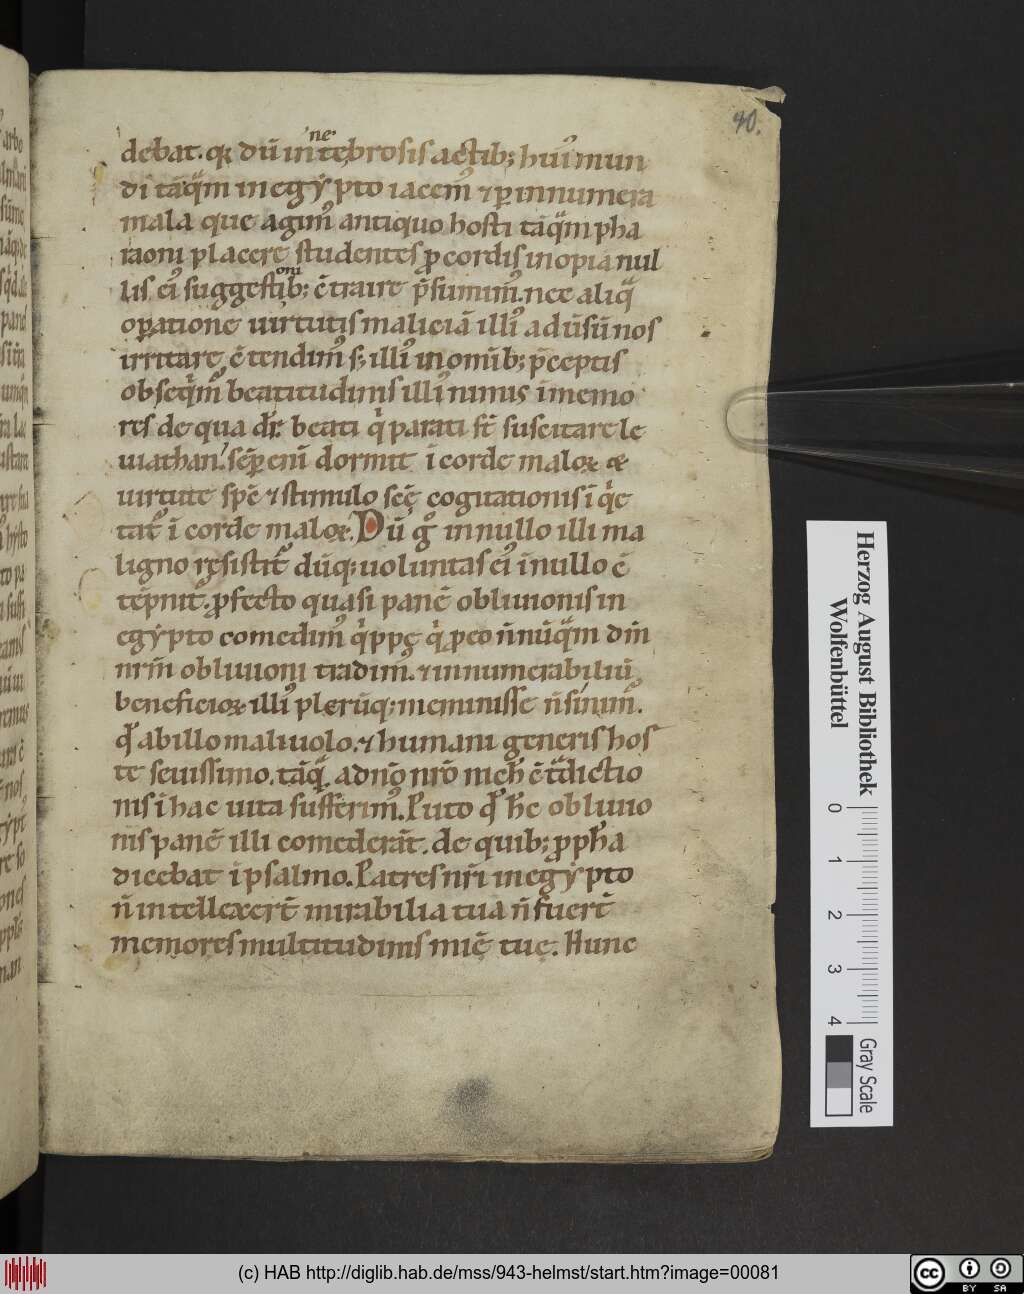 40.
debat. qꝛ dū in tenebrosis actib; hui᷒ mun
di tāqͣm in egẏpto iacem᷒ ⁊ ꝑ innumera
mala que agim᷒ antiquo hosti tāqͣm pha
raoni placere studentes ꝓ cordis inopia nul
lis ei᷒ suggestionib; c̄traire p̄sumim᷒. nec aliqͣ
oꝑatione uirtutis maliciā illi᷒ adūsū nos
irritare c̄tendim᷒ s; illi᷒ in omīb; p̄ceptis
obseqͥm᷒ beatitudinis illi᷒ nimis īmemo
res de qua dr̄. beati qͥ parati st̄ suscitare le
uiathan. sēꝑ enī dormit ī corde maloꝝ
uirtute spē ⁊ stimulo scē cogitationis ī qͥe
tat᷒ ī corde maloꝝ. Dū gͦ in nullo illi ma
ligno resistit᷒ dūq; uoluntas ei᷒ ī nullo c̄
tēpnit᷒. ꝓfecto quasi panē obliuionis in
egẏpto comedim᷒ qͥppe qͥ ꝑ eo n̄ nūqͣm dn̄i
nr̄m obliuioni tradim᷒. ⁊ innumerabiliū
beneficioꝝ illi᷒ plerūq; meminisse n̄ sinim᷒.
qd̓ ab illo maliuolo. ⁊ humani generis hos
te seuissimo. tāqͣ. ad nō nr̄o nich̄ c̄tͣdictio
nis ī hac uita sufferim᷒. Puto qd̓ h̄c obliuio
nis panē illi comederāt. de quib; ꝓpħa
dicebat ī psalmo. Patres nr̄i in egẏpto
n̄ intellexert̄ mirabilia tua n̄ fuert̄
memores multitudinis mīe tue. Hunc
Herzog August Bibliothek
Wolfenbüttel
0 1 2 3 4
Gray Scale
(c) HAB http://diglib.hab.de/mss/943-helmst/start.htm?image=00081
cc BY SA